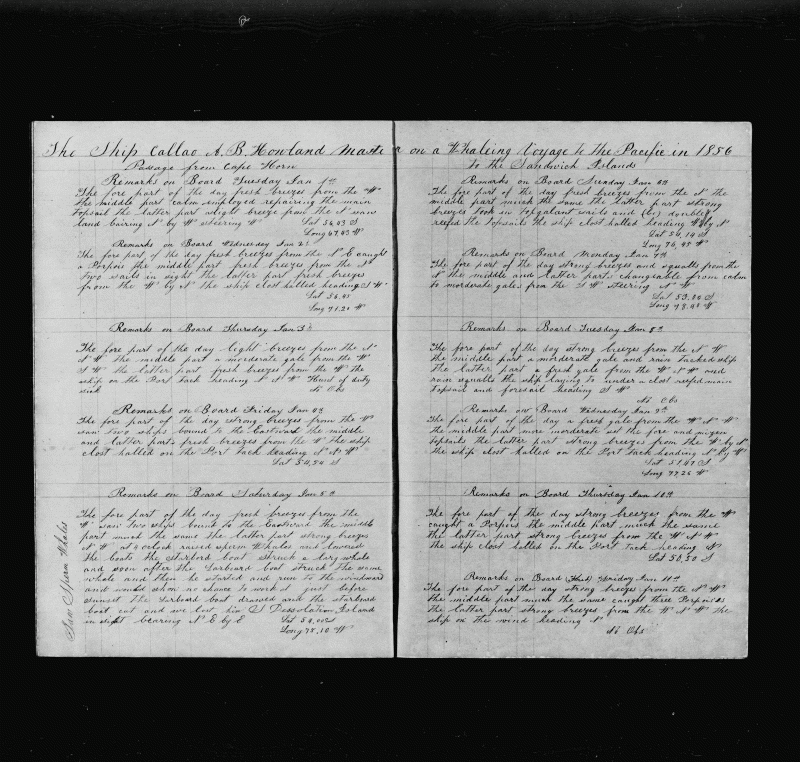 The Ship Callao A. B. Howland Master on a Whaleing Voyage to the Pacific in 1856
Passage from Cape Horn
Remarks on Board Tuesday Jan 1st
The fore part of the day fresh breezes from the W
the middle part calm employed repairing the main
topsail the latter part a light breeze from the N saw
land bairing N by W steering W
Lat 56,03 S
Long 67,03 W
Remarks on Board Wednesday Jan 2d
The fore part of the day fresh breezes from the N E caught
a Porpois the middle part fresh breezes from the N
two sails in sight the latter part fresh breezes
from the W by N the ship clost halled heading S W
Lat 56,45
Long 71,20 W
Remarks on Board Thursday Jan 3d
The fore part of the day light breezes from the N
N W the middle part a morderate gale from the W
S W the latter part fresh breezes from the W the
ship on the Port Tack heading N N W Hand of duty
sick
No Obs
Remarks on Board Friday Jan 4th
The fore part of the day strong breezes from the W
saw two ships bound to the Eastward the middle
and latter parts fresh breezes from the W the ship
clost halled on the Port Tack heading N N W
Lat 54,54 S
Remarks on Board Saturday Jan 5th
The fore part of the day fresh breezes from the
W saw two ships bound to the Eastward the middle
part much the same the latter part strong breezes
N W at 4 oclock raised sperm Whales and lowered
the boats the Starbord boat struck a large whale
and soon after the Larboard boat struck the same
whale and then he started and run to the windward
and sunset the Larboard boat drawed and the starboard
boat cut and we lost him S Dessolation Island
in sight bearing N E by E
Lat 54,00 S
Long 75,10 W
Saw Sperm Whales
to the Sandwich Islands
Remarks on Board Sunday Jan 6th
The fore part of the day fresh breezes from the N the
middle part much the same the latter part strong
breezes took in topgalant sails and double
reefed the topsails the ship clost halled heading W by N
Lat 54,19 S
Long 76,47 W
Remarks on Board Monday Jan 7th
The fore part of the day strong breezes and squalls from the
N the middle and latter parts changeable from calm
to morderate gales from the S W steering N W
Lat 53,00 S
Long 78,48 W
Remarks on Board Tuesday Jan 8th
The fore part of the day strong breezes from the N W
the middle part a morderate gale and rain tacked ship
the latter part a fresh gale from the W N W and
rain squalls the ship laying to under a clost reefed main
topsail and foresail heading S W
No Obs
Remarks on Board Wednesday Jan 9th
The fore part of the day a fresh gale from the W N W
the middle part more morderate set the fore and mizen
topsails the latter part strong breezes from the W by N
the ship clost halled on the Port Tack heading N by W
Lat 51,47 S
Long 77,26 W
Remarks on Board Thursday Jan 10th
The fore part of the day strong breezes from the W
caught a Porpois the middle part much the same
the latter part strong breezes from the W N W
the ship clost halled on the Port Tack heading N
Lat 50,50 S
Remarks on Board Friday Jan 11th
The fore part of the day strong breezes from the N W
the middle part much the same caught three Porpoises
the latter part strong breezes from the W N W the
ship on the wind heading N
No Obs